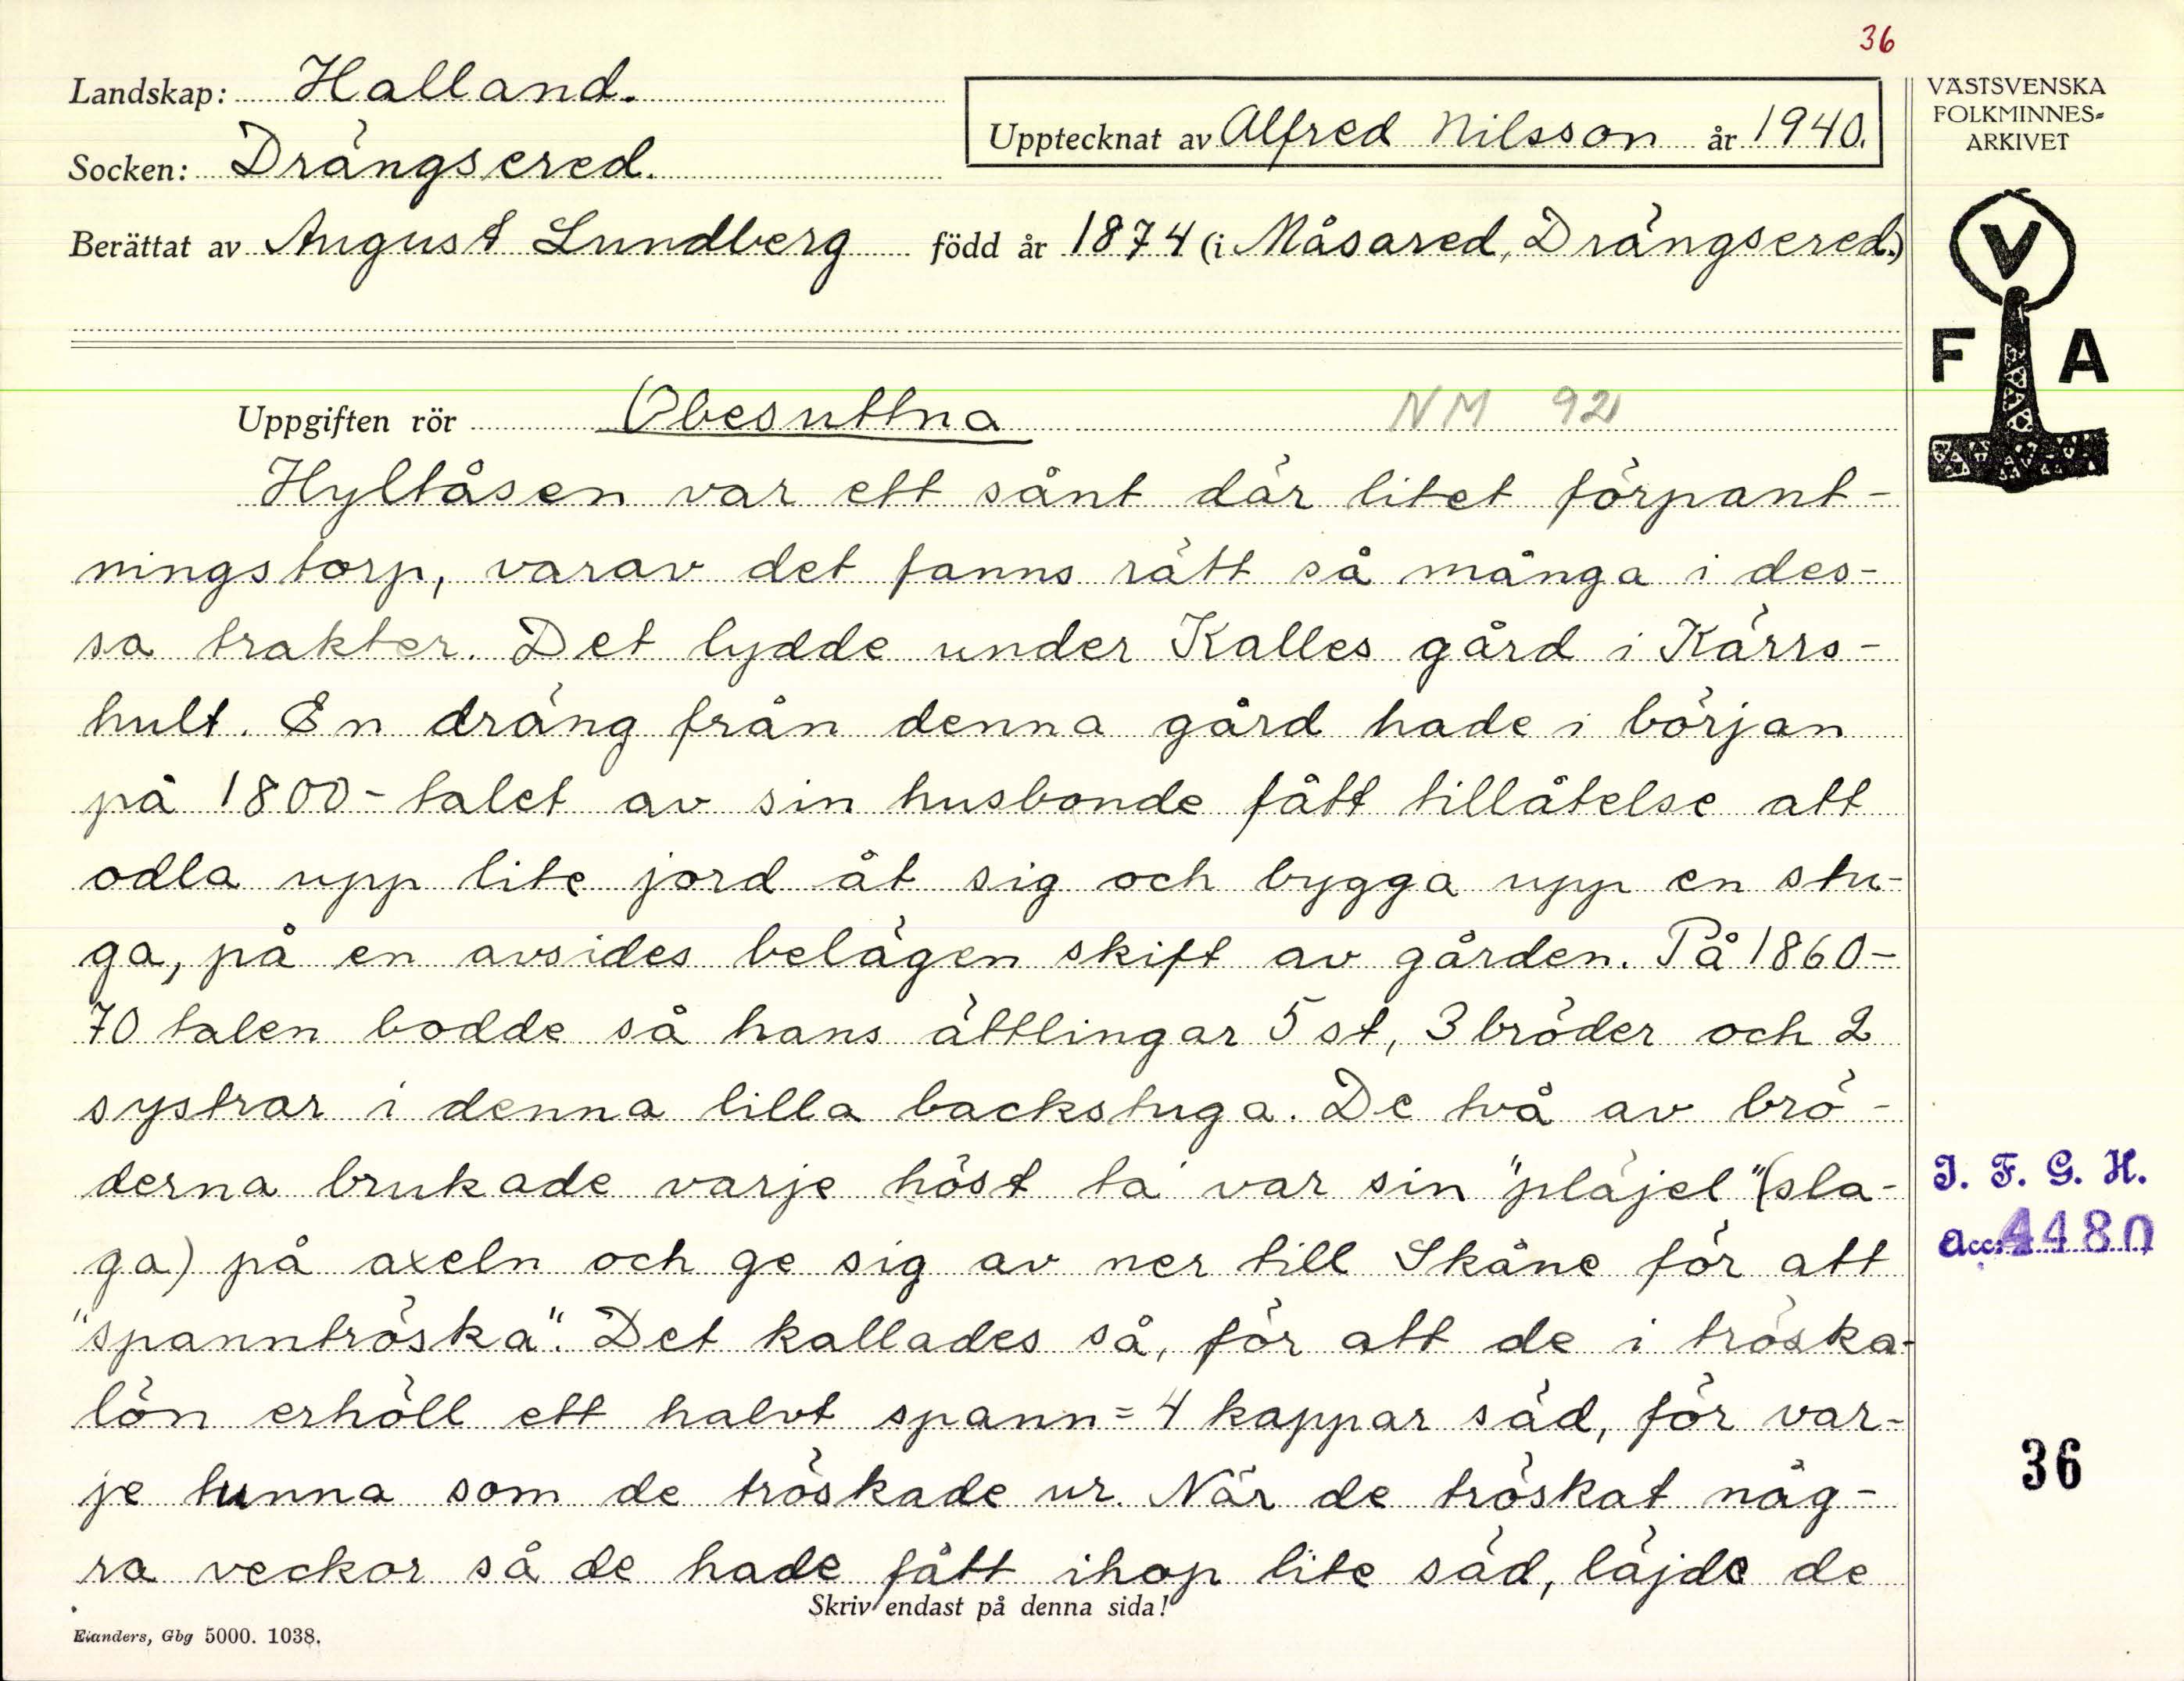 36
Landskap: Halland.
Socken: Drängsered.
Upptecknat av Alfred Nilsson år 1940.
Berättat av August Lundberg född år 1874 (i Måsared, Drängsered.)
VÄSTSVENSKA
FOLKMINNES-
ARKIVET
V
F A
Uppgiften rör Obesuttna NM 92
Hyltåsen var ett sånt där litet förpant-
ningstorp, varav det fanns rätt så många i des-
sa trakter. Det lydde under Kalles gård i Kärrs-
hult. En dräng från denna gård hade i början
på 1800-talet av sin husbonde fått tillåtelse att
odla upp lite jord åt sig och bygga upp en stu-
ga, på en avsides belägen skift av gården. På 1860-
70 talen bodde så hans ättlingar 5 st, 3 bröder och 2
systrar i denna lilla backstuga. De två av brö-
derna brukade varje höst ta var sin "pläjel" (sla-
ga) på axeln och ge sig av ner till Skåne för att
"spanntröska". Det kallades så, för att de i tröska-
lön erhöll ett halvt spann = 4 kappar säd, för var-
je tunna som de tröskade ur. När de tröskat någ-
ra veckor så de hade fått ihop lite säd, läjde de
I. F. G. H.
Acc. 4480
36
Skriv endast på denna sida!
Elanders, Gbg 5000. 1038.